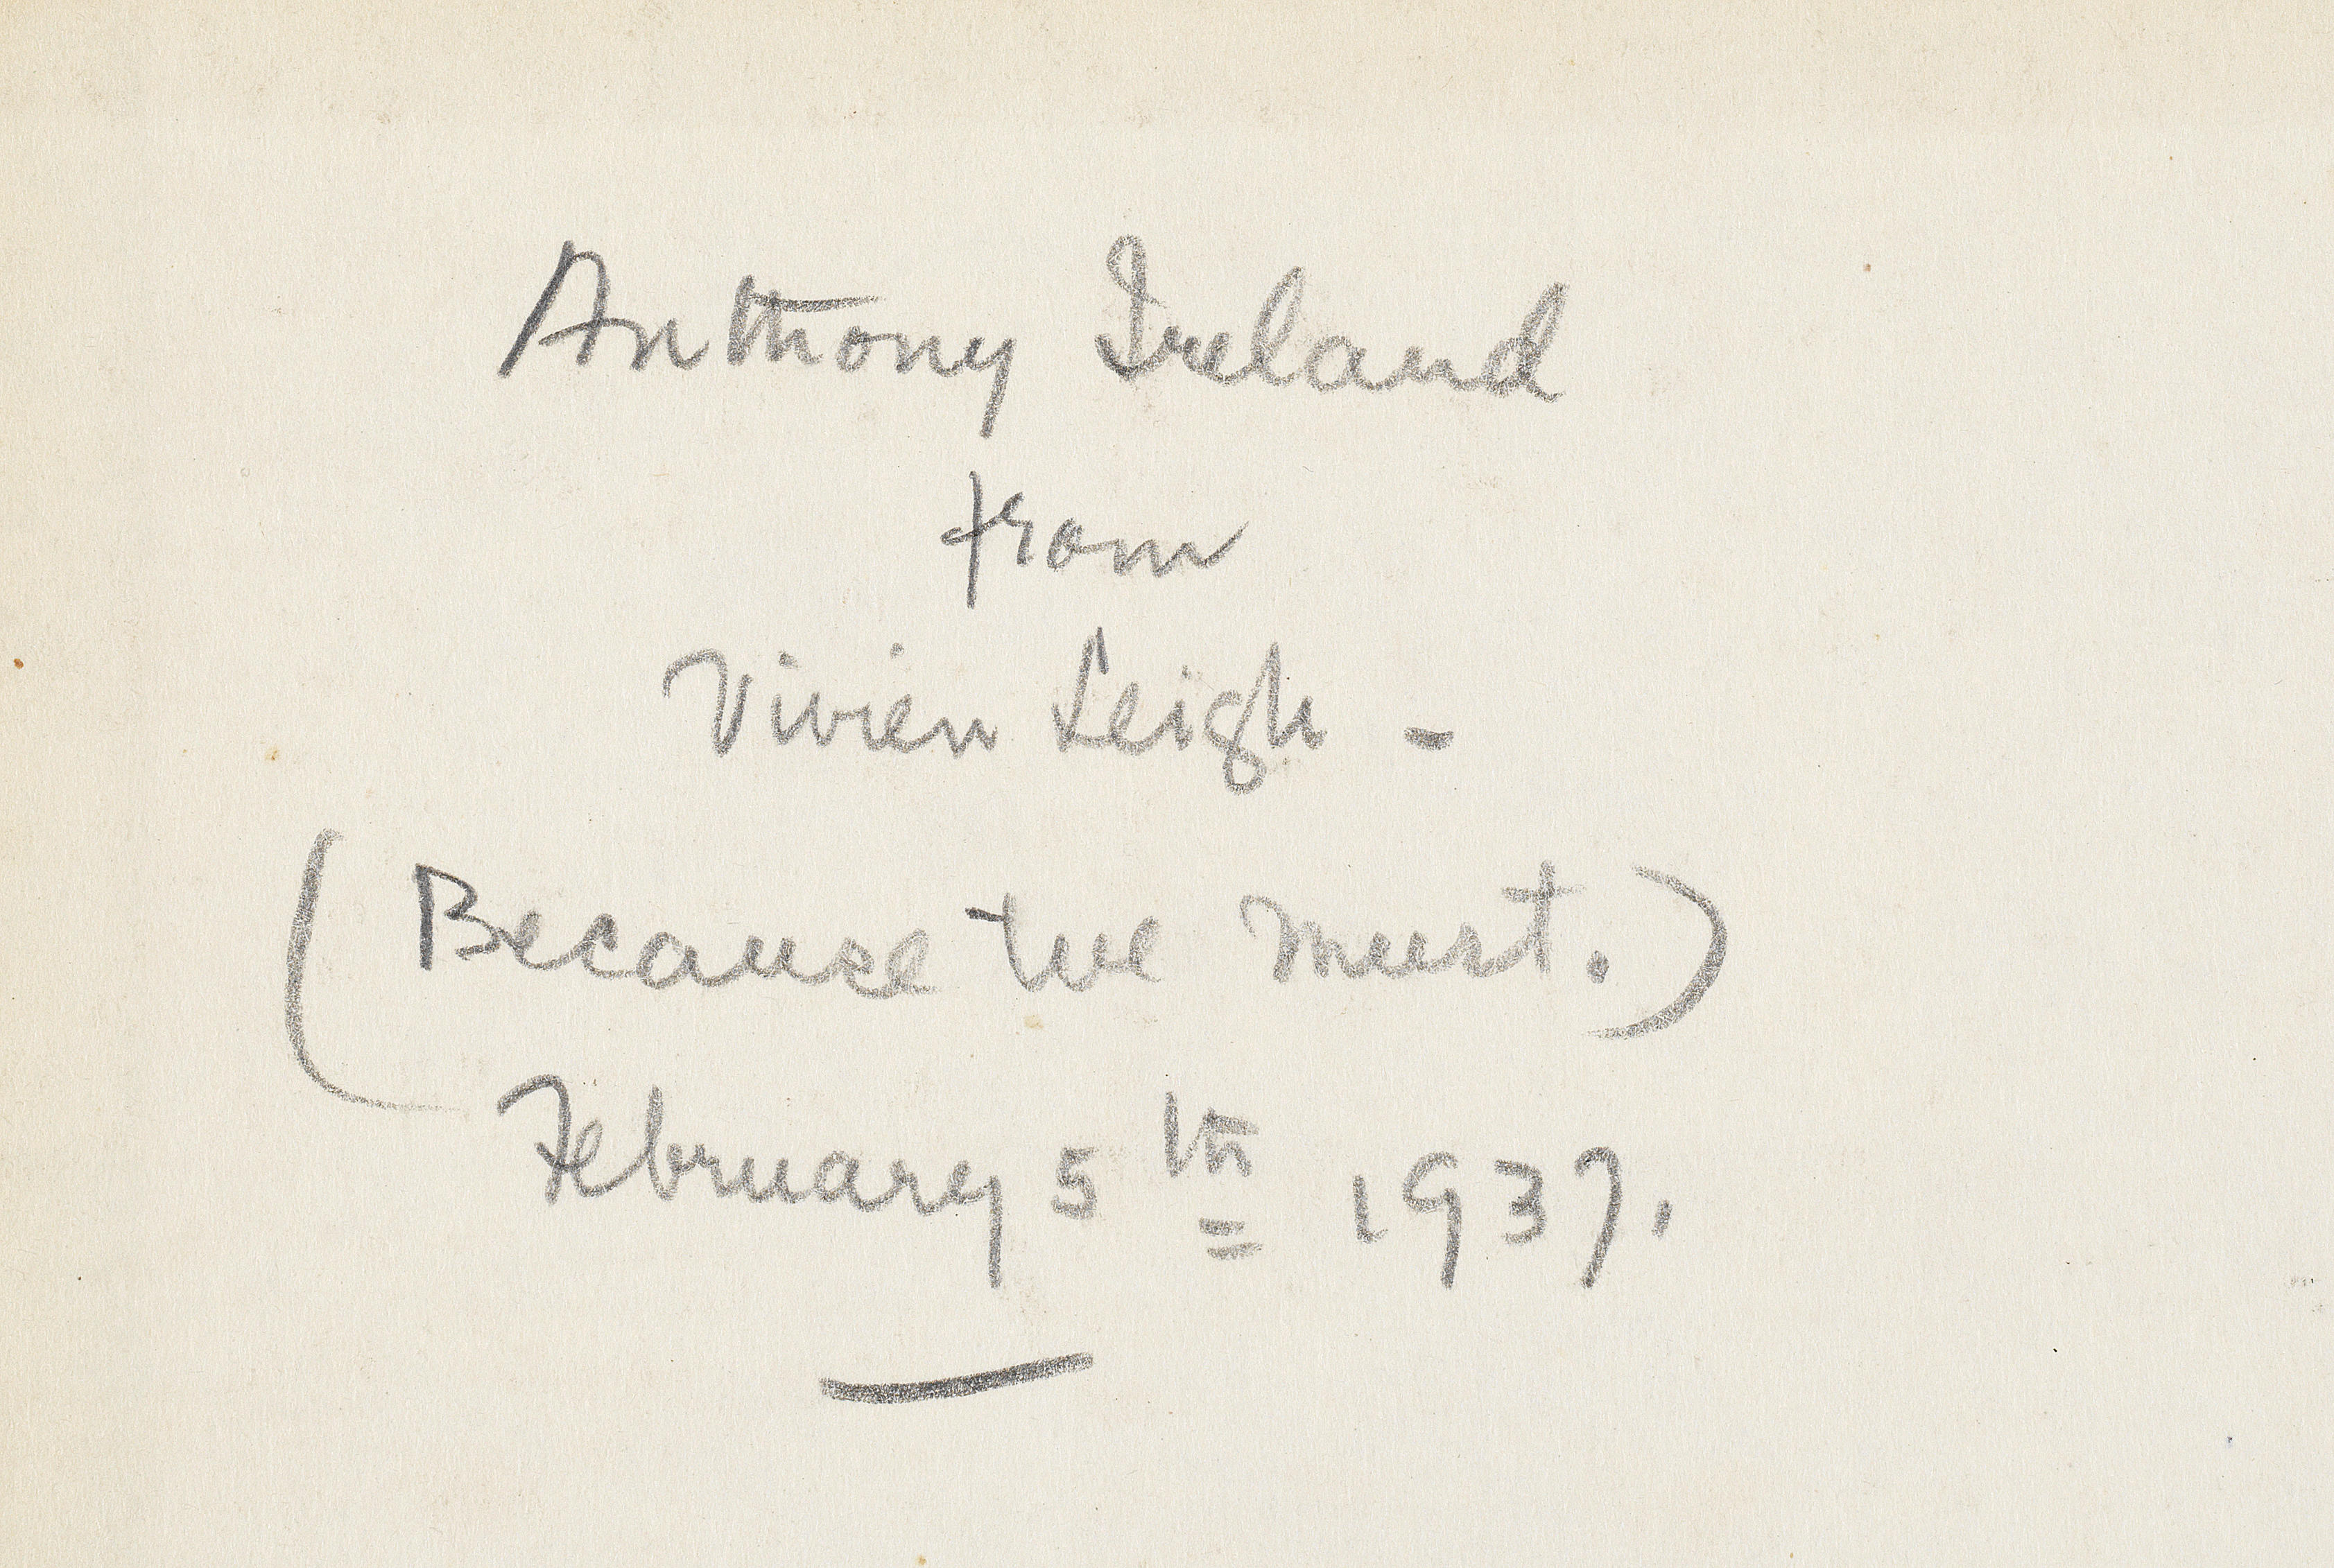 Anthony Ireland
from
Vivien Leigh -
(Because we must.)
February 5th 1937.